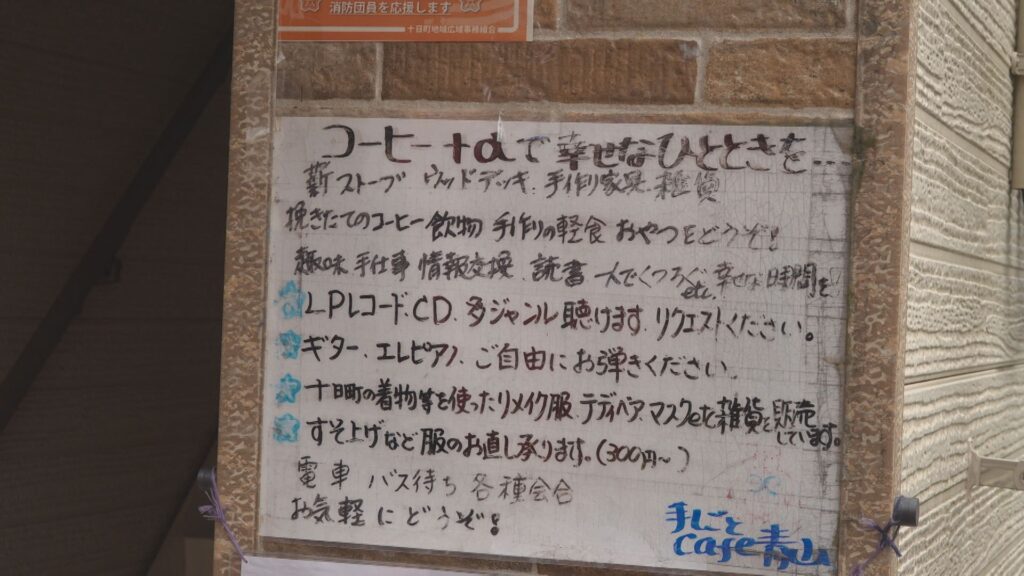 消防団員を応援します
十日町地域広域事務組合
コーヒー+αで幸せなひとときを…
薪ストーブ ウッドデッキ、手作り家具、雑貨
挽きたてのコーヒー飲物 手作りの軽食 おやつをどうぞ!
趣味 手仕事 情報交換、読書 etc. 一人でくつろぐ幸せな時間を
LPレコード、CD、多ジャンル聴けます。リクエストください。
ギター、エレピアノ、ご自由にお弾きください。
十日町の着物等を使ったリメイク服、テディベア マスクetc雑貨を販売しています。
すそ上げなど服のお直し承ります。(300円~)
電車 バス待ち 各種会合
お気軽にどうぞ!
手しごと
Cafe青山